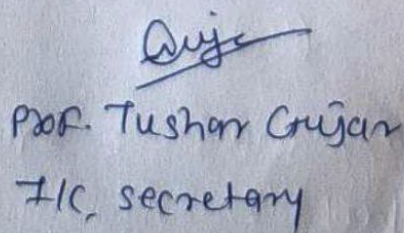 Prof. Tushar Gujar
I/C, secretary